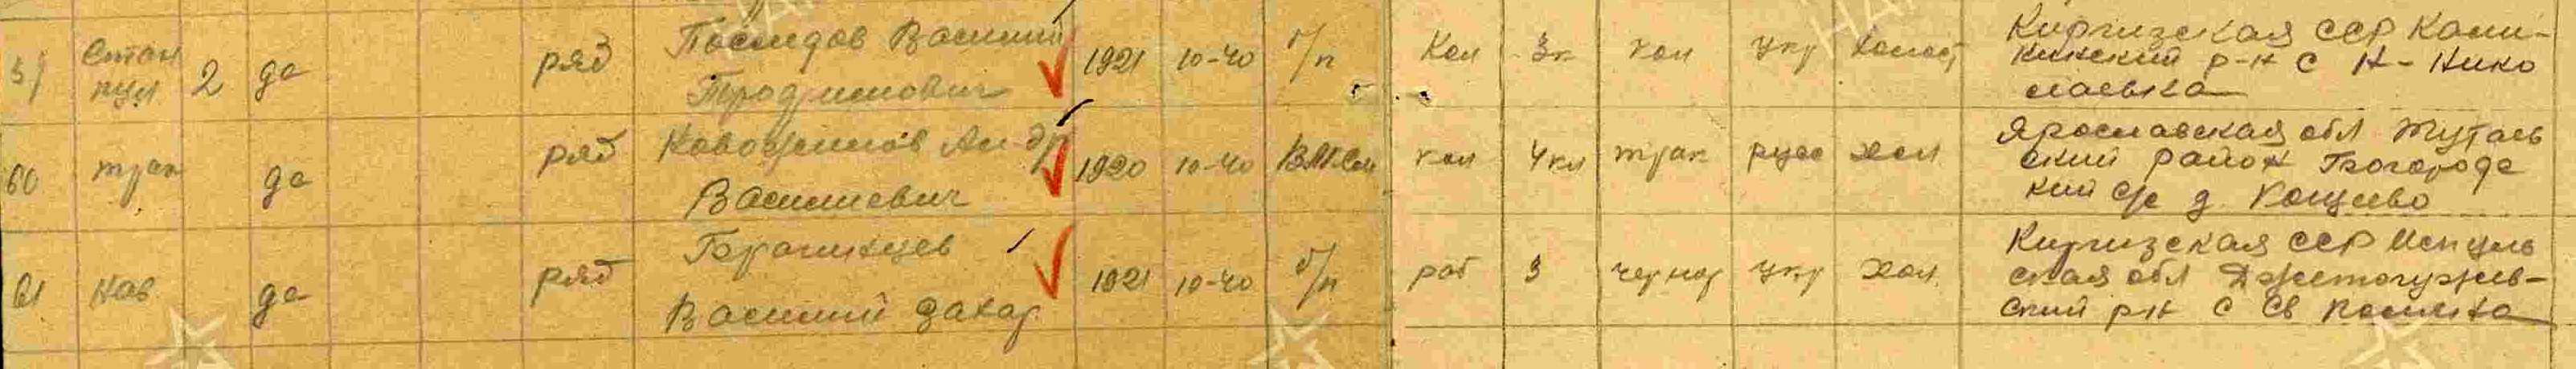 59 Стан пул 2 да ряд Последов Василий Трофимович 1921 10-40 б/п Кол 3к кол укр холост Киргизская ССР Кали-
нинский р-н с Н-Нико
лаевка
60 трак да ряд Новожилов Андр Василиевич 1920 10-40 ВЛКСМ кол 4кл трак русс хол Ярославская обл Тутаев
ский район Богородс
кий с/с д
61 Нав да ряд Василий Захар 1921 10-40 б/п раб 3 чернор укр хол Киргизская ССР Исикуль
ская обл Джетогузев-
ский р-н с Св